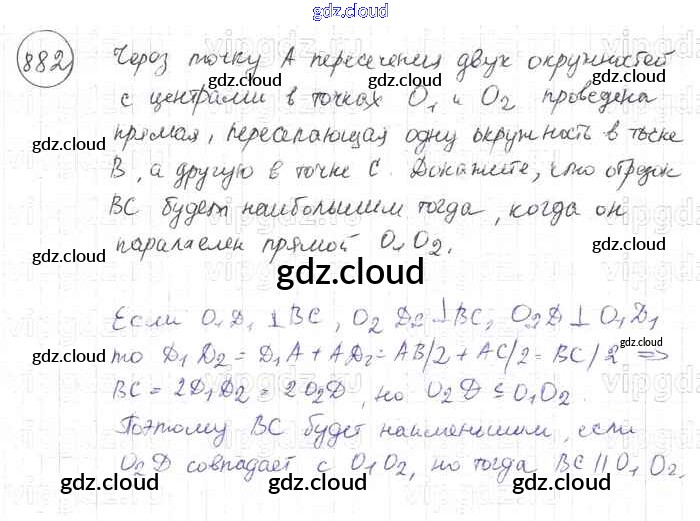 gdz.cloud
882 Через точку А пересечения двух окружностей
с центрами в точках O₁ и O₂ проведена
прямая, пересекающая одну окружность в точке
В, а другую в точке С. Докажите, что отрезок
ВС будет наибольшим тогда, когда он
паралаелен прямой O₁O₂.
gdz.cloud
Если O₁D₁ ⊥ BC, O₂D₂ ⊥ BC, O₂D ⊥ O₁D₁
то D₁D₂ = D₁A + AD₂ = AB/2 + AC/2 = BC/2 =>
BC = 2D₁D₂ = 2O₂D, но O₂D ≤ O₁O₂.
Поэтому BC будет наименьшим, если
O₂D совпадает с O₁O₂, но тогда BC || O₁O₂.
gdz.cloud gdz.cloud gdz.cloud